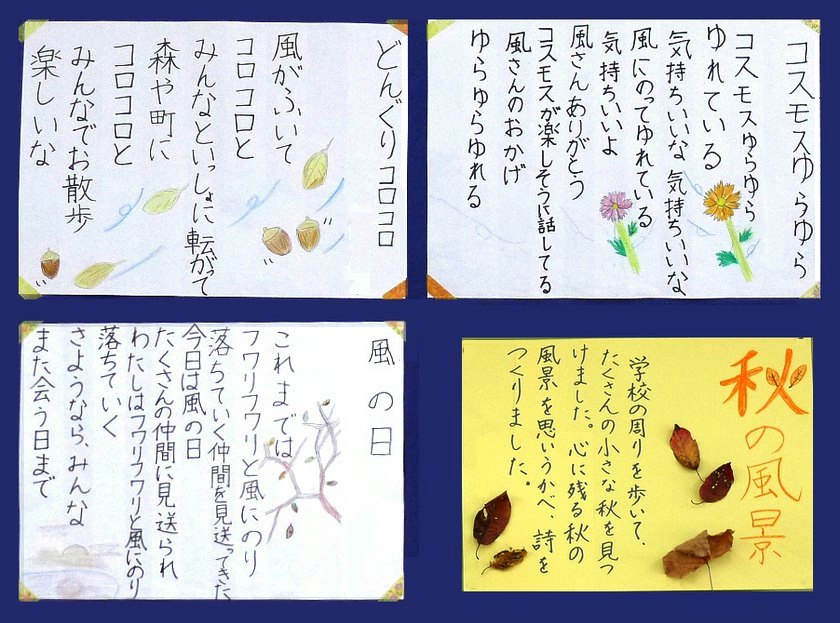 どんぐりコロコロ
風がふいて
コロコロと
みんなといっしょに転がって
森や町に
コロコロと
みんなでお散歩
楽しいな
コスモスゆらゆら
コスモスゆらゆら
ゆれている
気持ちいいな気持ちいいな
風にのってゆれている
気持ちいいよ
風さんありがとう
コスモスが楽しそうに話してる
風さんのおかげ
ゆらゆらゆれる
風の日
これまでは
フワリフワリと風にのり
落ちていく仲間を見送ってきた
今日は風の日
たくさんの仲間に見送られ
わたしはフワリフワリと風にのり
落ちていく
さようなら、みんな
また会う日まで
秋の風景
学校の周りを歩いて、
たくさんの小さな秋を見つ
けました。心に残る秋の
風景を思いうかべ、詩を
つくりました。